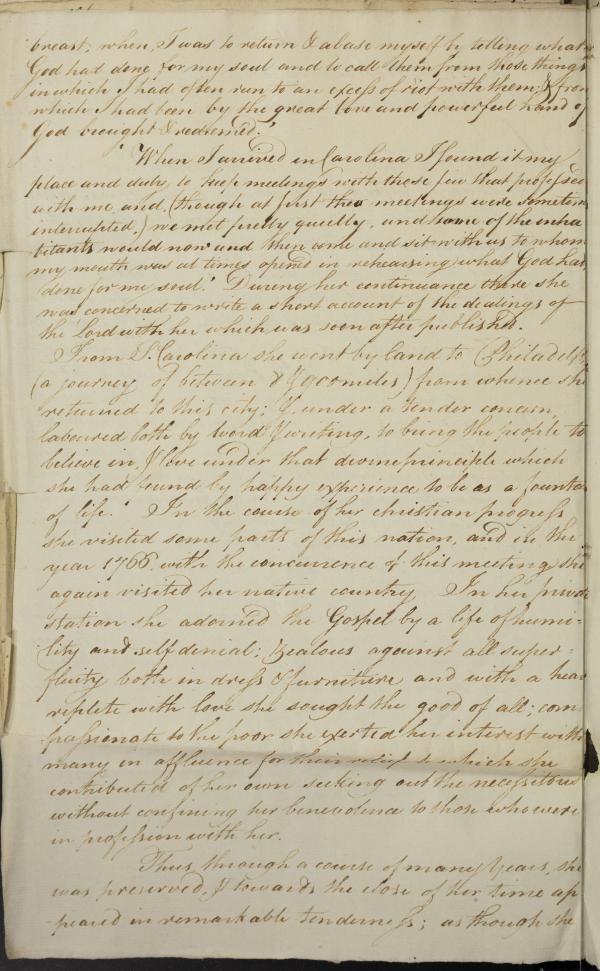 breast; when, I was to return & abase myself by telling what
God had done for my soul and to call them from those things
in which I had often run to an excess of riot with them; & from
which I had been by the great love and powerful hand of
God brought & redeemed.'
'When I arrived in Carolina I found it my
place and duty to keep meetings with those few that professed
with me and, (though at first the meetings were sometimes
interrupted,) we met pretty quietly, and some of the inha
bitants would now and then come and sit with us to whom
my mouth was at times opened in rehearsing what God had
done for my soul.' During her continuance there she
was concerned to write a short account of the dealings of
the Lord with her which was soon after published.
From S. Carolina she went by land to Philadelp
(a journey of between 8 & 900 miles) from whence she
returned to this city; & under a tender concern,
laboured both by word & writing, to bring the people to
believe in, & love under that divine principle which
she had found by happy experience to be as a fountain
of life. In the course of her christian progress
she visited some parts of this nation, and in the
year 1766 with the concurrence of this meeting she
again visited her native country In her private
station she adorned the Gospel by a life of humi-
lity and self denial; zealous against all super-
fluity both in dress & furniture and with a heart
replete with love she sought the good of all; com
passionate to the poor she exerted her interest with
many in affluence for their relief to which she
contributed of her own seeking out the necessitous
without confining her benevolence to those who were
in profession with her.
Thus through a course of many years, she
was preserved, & towards the close of her time ap
-peared in remarkable tenderness; as though she